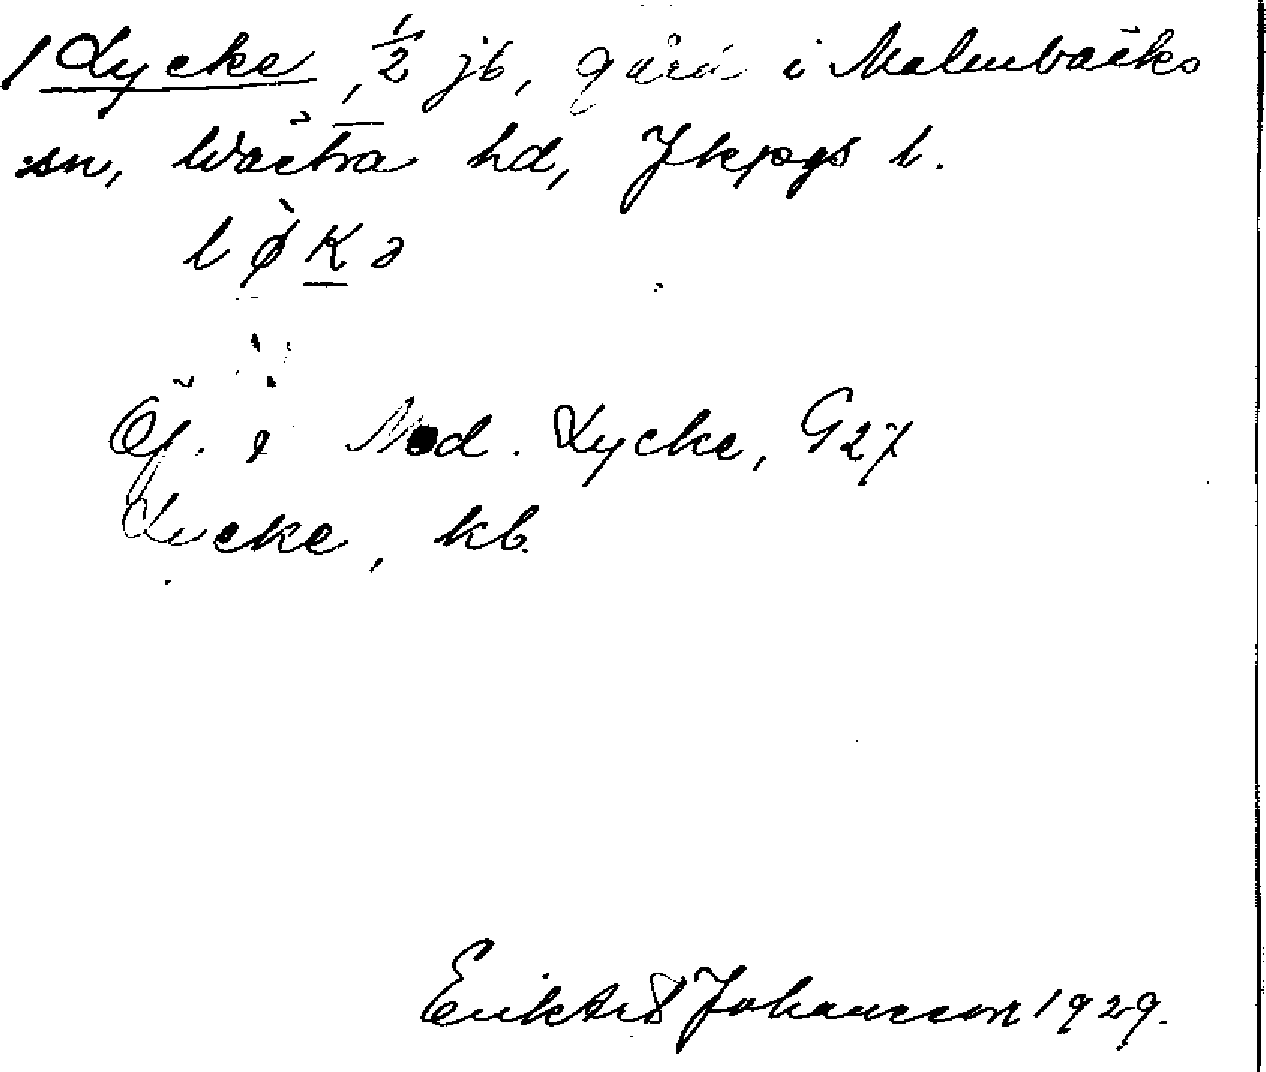 / Lycke, 1/2 jb, gård i Malmbäcks
sn, Wästra hd, Jkpgs l.
løKə
Öf. o Ned. Lycke, G27
Lycke, kb.
Johansson 1929.